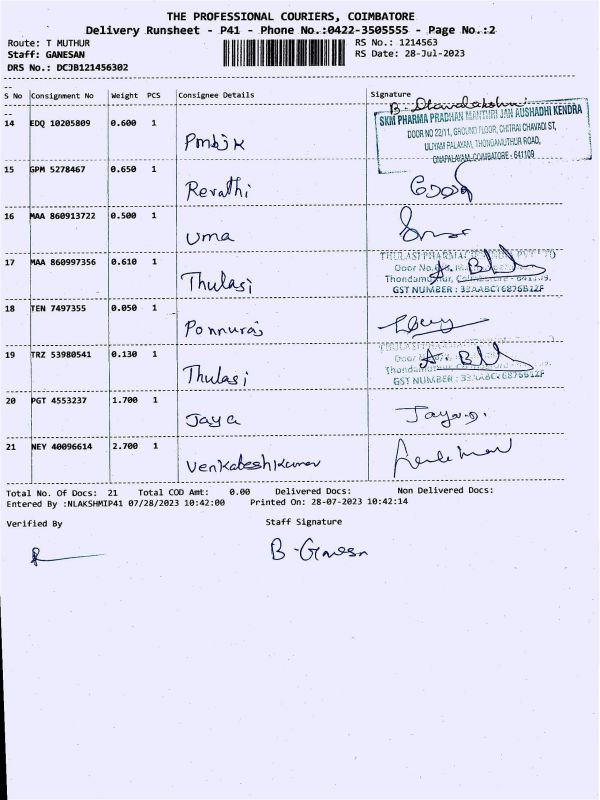 THE PROFESSIONAL COURIERS, COIMBATORE
Delivery Runsheet - P41 - Phone No.:0422-3505555 - Page No.:2
Route: T MUTHUR
RS No.: 1214563
Staff: GANESAN
RS Date: 28-Jul-2023
DRS No.: DCJB121456302
S No Consignment No Weight PCS Consignee Details Signature
14 EDQ 10205809 0.600 1
SKM PHARMA PRADHAN MANTHRI JAN AUSHADHI KENDRA
DOOR NO 22/11, GROUND FLOOR, CHITRAI CHAVADI ST,
ULIYAM PALAYAM, THONDAMUTHUR ROAD,
ONAPALAYAM, COIMBATORE - 641109
15 GPM 5278467 0.650 1
Revathi
16 MAA 860913722 0.500 1
uma
17 MAA 860997356 0.610 1
Thulasi
GST NUMBER : 33AABCT6876B1ZF
18 TEN 7497355 0.050 1
Ponnuraj
19 TRZ 53980541 0.130 1
Thulasi
20 PGT 4553237 1.700 1
Jaya
21 NEY 40096614 2.700 1
Venkateshkumar
Total No. Of Docs: 21 Total COD Amt: 0.00 Delivered Docs: Non Delivered Docs:
Entered By :NLAKSHMIP41 07/28/2023 10:42:00 Printed On: 28-07-2023 10:42:14
Verified By Staff Signature
B-Ganesan